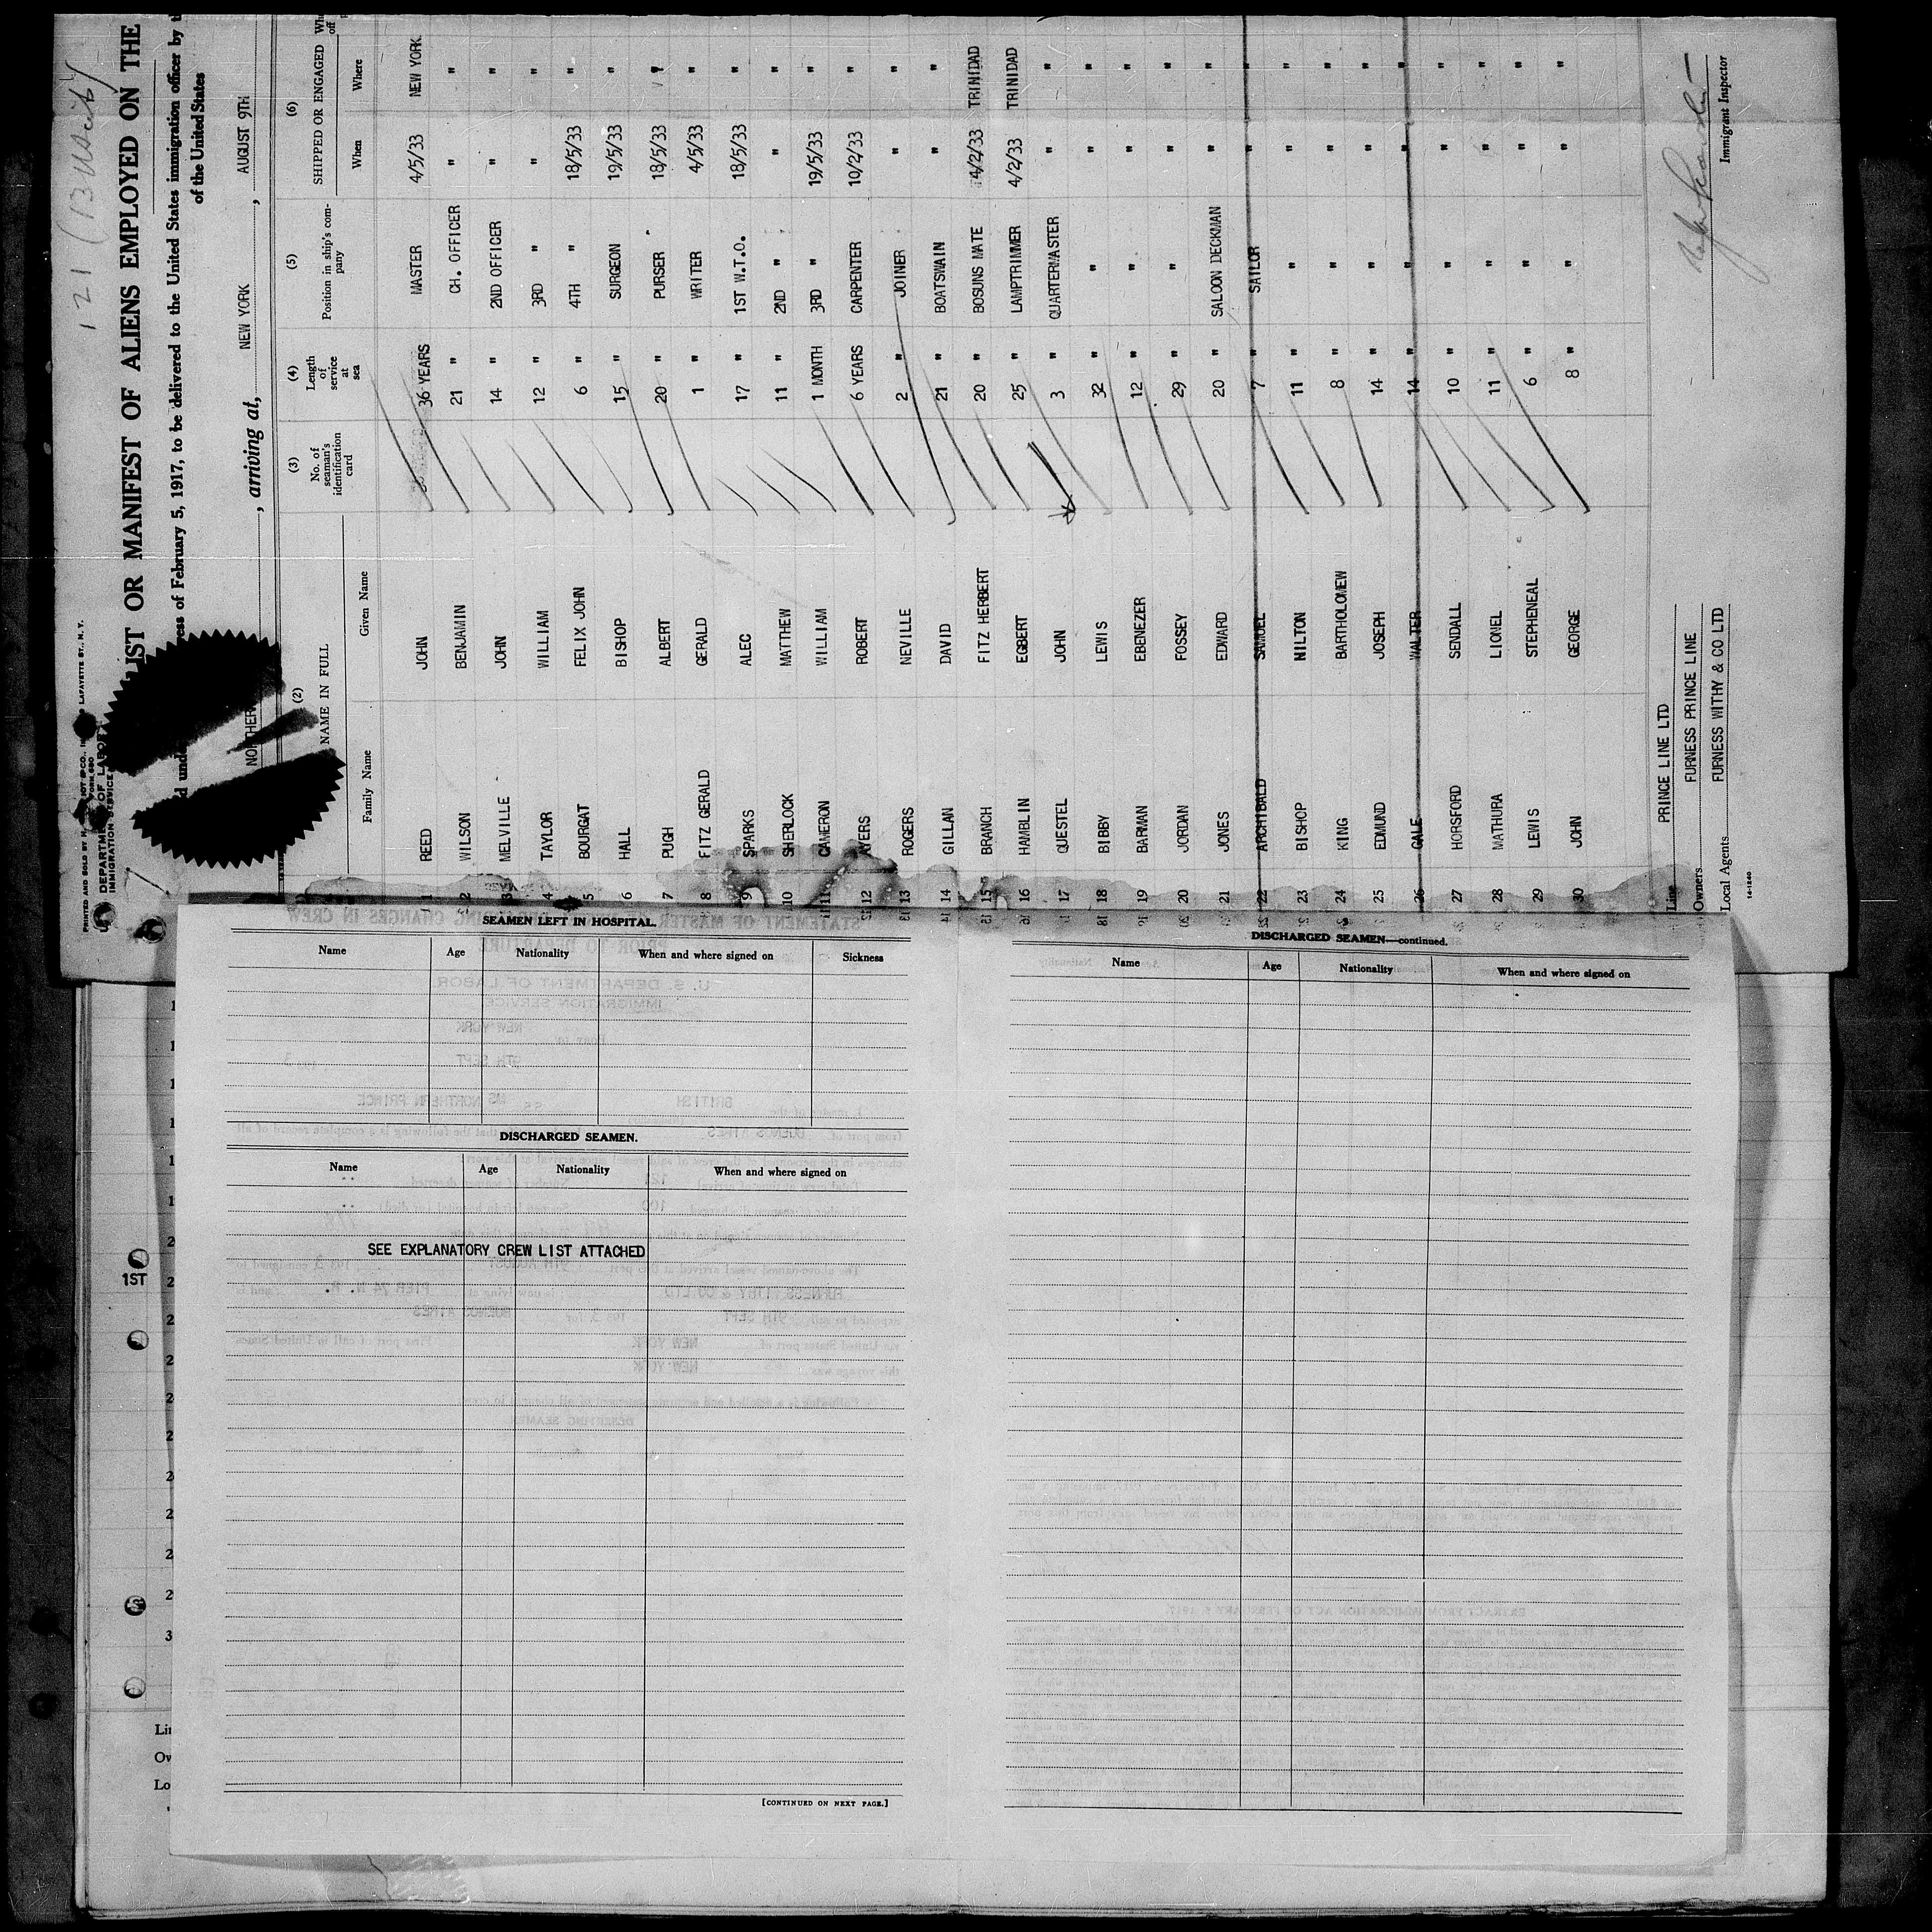 121 (13 US cit)
PRINTED AND SOLD BY
LAFAYETTE ST., N. Y.
FORM 680
U. S. DEPARTMENT OF LABOR
IMMIGRATION SERVICE
LIST OR MANIFEST OF ALIENS EMPLOYED ON THE
ress of February 5, 1917, to be delivered to the United States immigration officer by
of the United States
NORTHER , arriving at, NEW YORK , AUGUST 9TH
(2) (3) (4) (5) (6)
NAME IN FULL No. of seaman's identification card Length of service at sea Position in ship's company SHIPPED OR ENGAGED
Family Name Given Name When Where
1 REED JOHN 36 YEARS MASTER 4/5/33 NEW YORK
2 WILSON BENJAMIN 21 " CH. OFFICER " "
3 MELVILLE JOHN 14 " 2ND OFFICER " "
4 TAYLOR WILLIAM 12 " 3RD " " "
5 BOURGAT FELIX JOHN 6 " 4TH " 18/5/33 "
6 HALL BISHOP 15 " SURGEON 19/5/33 "
7 PUGH ALBERT 20 " PURSER 18/5/33 "
8 FITZ GERALD GERALD 1 " WRITER 4/5/33 "
9 SPARKS ALEC 17 " 1ST W.T.O. 18/5/33 "
10 SHERLOCK MATTHEW 11 " 2ND " " "
11 CAMERON WILLIAM 1 MONTH 3RD " 19/5/33 "
12 AYERS ROBERT 6 YEARS CARPENTER 10/2/33 "
13 ROGERS NEVILLE 2 " JOINER " "
14 GILLAN DAVID 21 " BOATSWAIN " "
15 BRANCH FITZ HERBERT 20 " BOSUNS MATE 14/2/33 TRINIDAD
16 HAMBLIN EGBERT 25 " LAMPTRIMMER 4/2/33 TRINIDAD
17 QUESTEL JOHN 3 " QUARTERMASTER " "
18 BIBBY LEWIS 32 " " " "
19 BARMAN EBENEZER 12 " " " "
20 JORDAN FOSSEY 29 " " " "
21 JONES EDWARD 20 " SALOON DECKMAN " "
22 ARCHIBALD SAMUEL 7 " SAILOR " "
23 BISHOP NILTON 11 " " " "
24 KING BARTHOLOMEW 8 " " " "
25 EDMUND JOSEPH 14 " " " "
26 GALE WALTER 14 " " " "
27 HORSFORD SENDALL 10 " " " "
28 MATHURA LIONEL 11 " " " "
29 LEWIS STEPHENEAL 6 " " " "
30 JOHN GEORGE 8 " " " "
Line PRINCE LINE LTD
Owners FURNESS PRINCE LINE
Local Agents FURNESS WITHY & CO LTD
Immigrant Inspector
SEAMEN LEFT IN HOSPITAL.
Name Age Nationality When and where signed on Sickness
DISCHARGED SEAMEN.
Name Age Nationality When and where signed on
SEE EXPLANATORY CREW LIST ATTACHED
[CONTINUED ON NEXT PAGE.]
DISCHARGED SEAMEN—continued.
Name Age Nationality When and where signed on
1ST